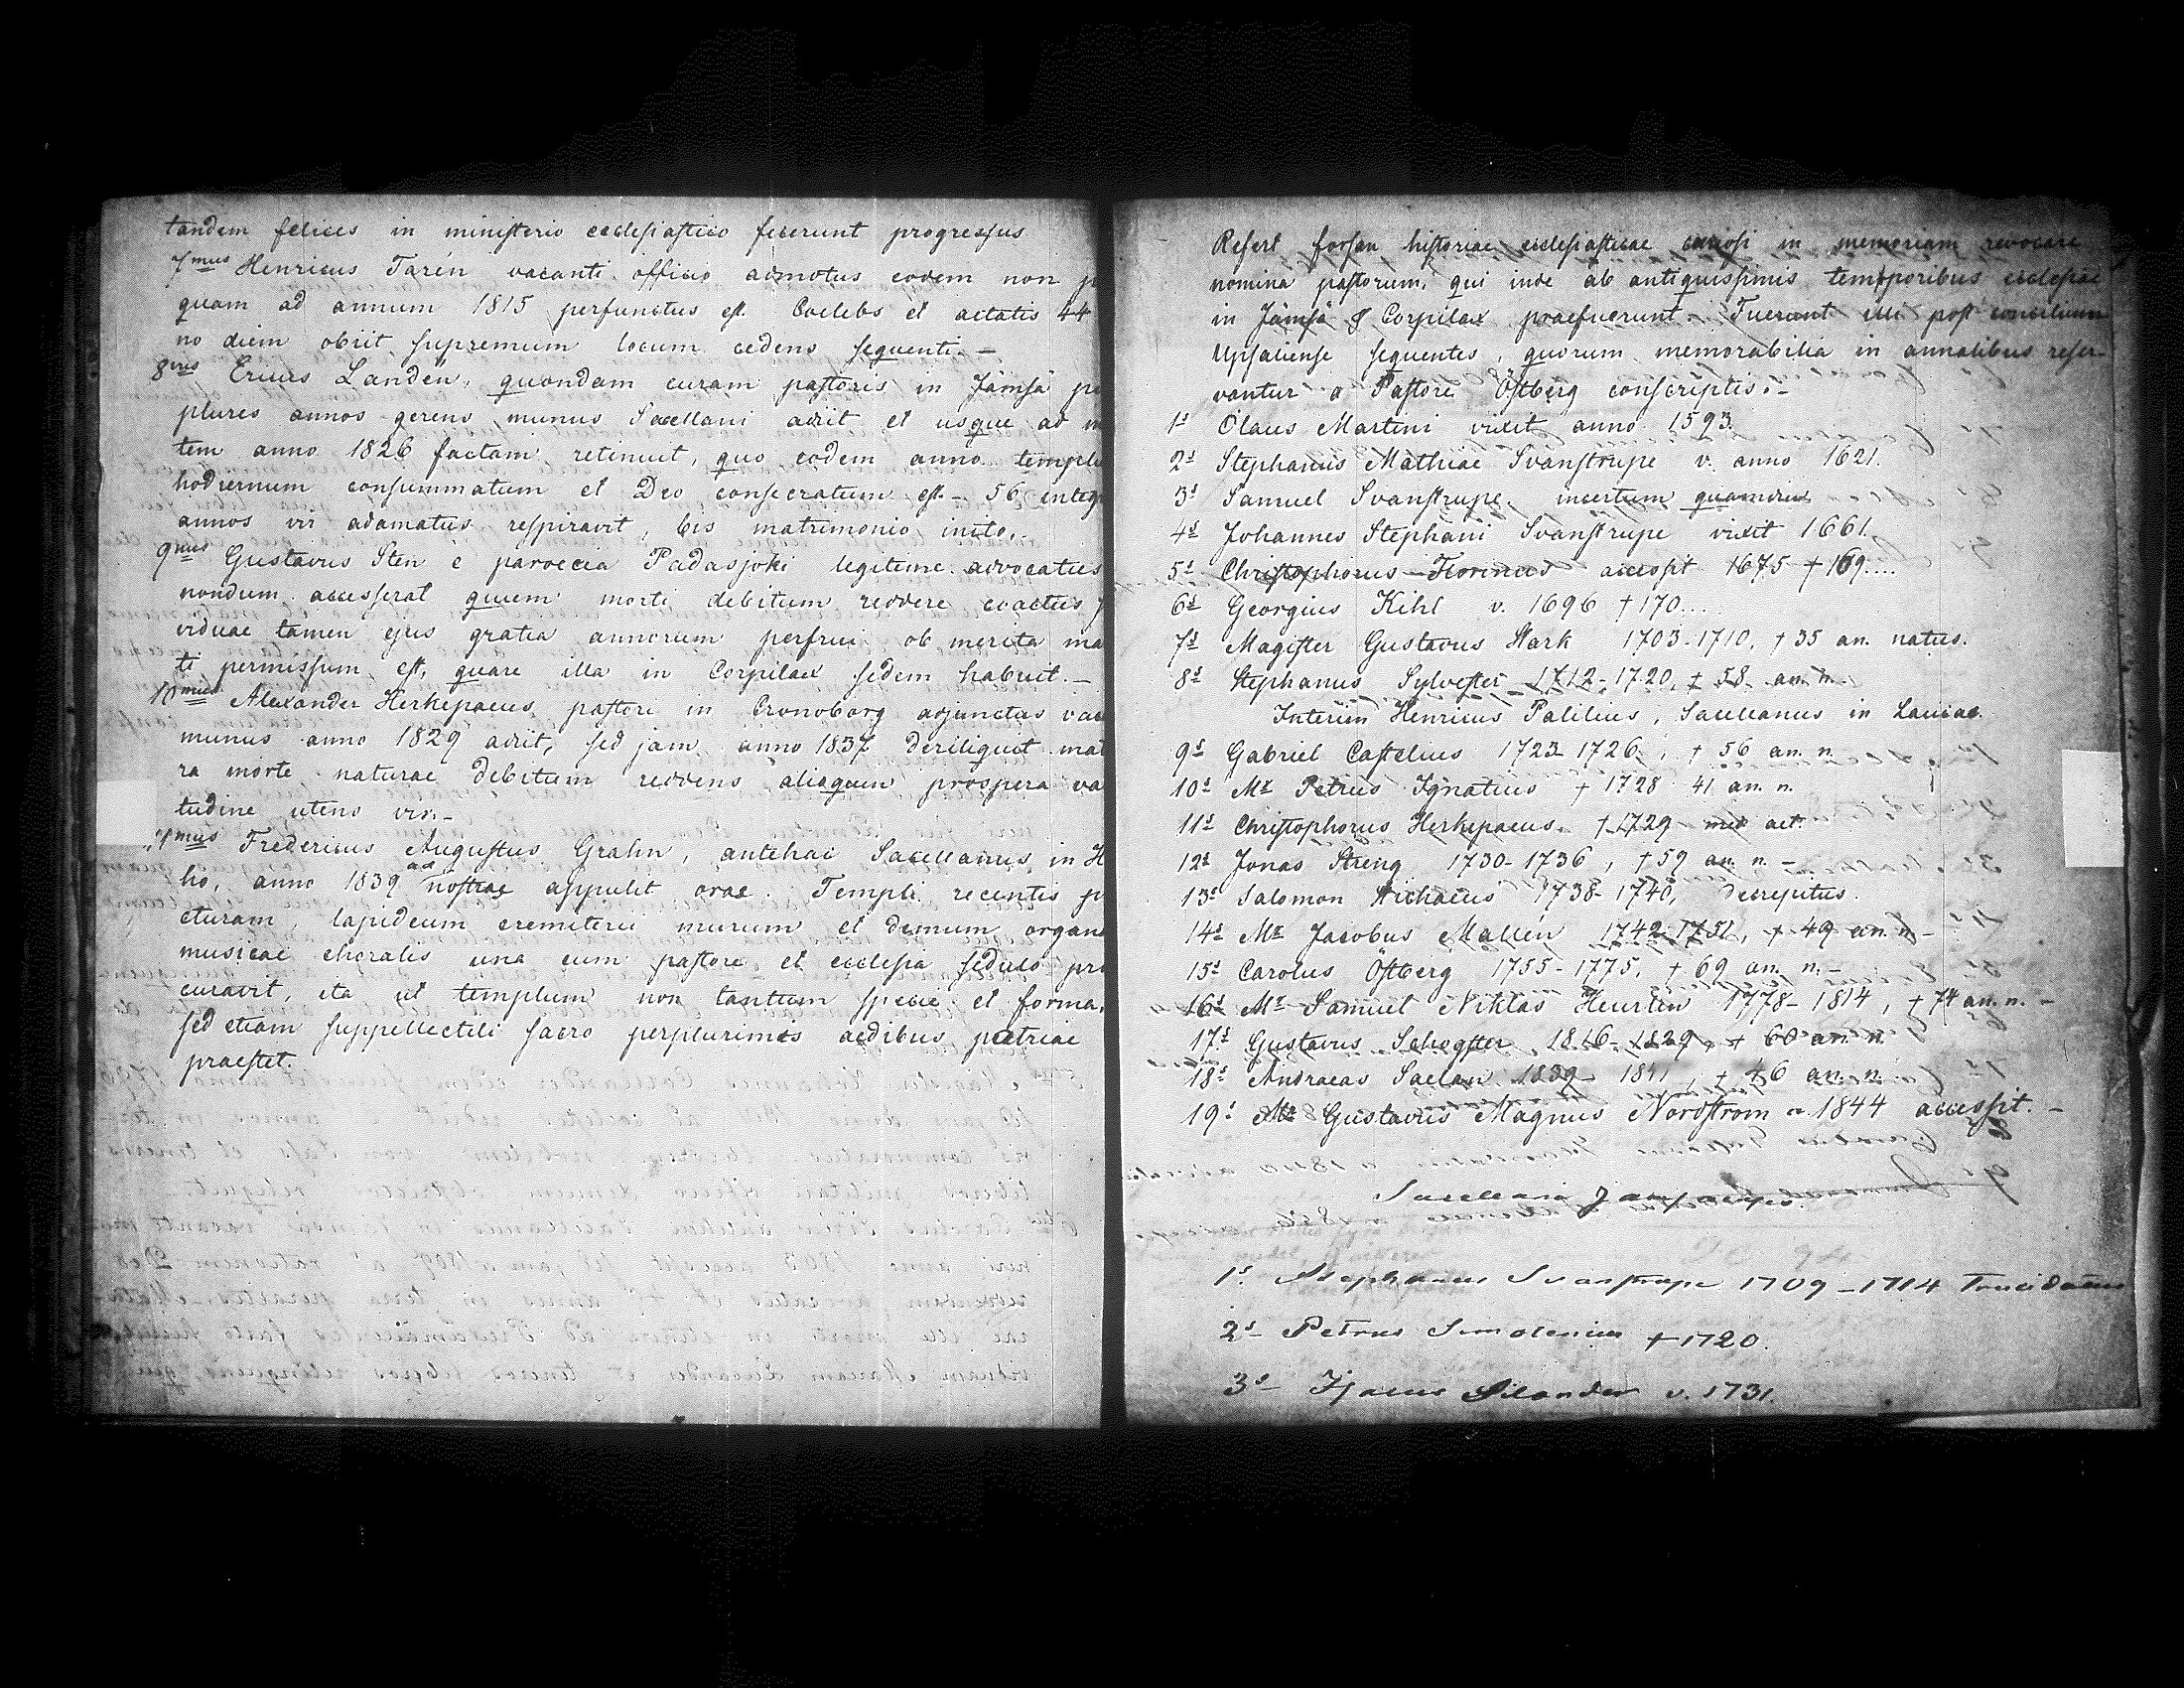 tandem felices in ministerio ecclesiastico fecerunt progressus
7mus Henricus Tarén vacanti officio admotus eodem non
quam ad annum 1815 perfunctus est. Coelebs et aetatis 44
no diem obiit supremum locum cedens sequenti. –
8vus Ericus Landén, quondam curam pastoris in Jämsä
plures annos gerens munus Sacellani adiit et usque ad
tem anno 1826 factam retinuit, quo eodem anno templu
hodiernum consummatum et Deo consecratum est. – 56 integ
annos vir adamatus respiravit, bis matrimonio inito.
9nus Gustavus Sten e paroecia Padasjoki legitime advocatus
nondum accesserat quum morti debitum reddere coactus
viduae tamen ejus gratia annorum perfrui ob merita ma
ti permissum est, quare illa in Corpilax sedem habuit. –
10mus Alexander Herkepaeus, pastori in Cronoborg adjunctus vac
munus anno 1829 adiit, sed jam anno 1837 deriliquit mat
ra morte naturae debitum reddens alioquin prospera va
tudine utens vir. –
11mus Fredericus Augustus Grahn, antehac Sacellanus in H
ho, anno 1839 ad nostrae appulit orae. Templi recentis
cturam, lapideum cremiterii murum et demum organa
musicae choralis una cum pastore et ecclesia sedulo pro
curavit, ita ut templum non tantum specie et forma,
sed etiam suppellectili sacro perplurimis aedibus patriae
praestet.
Refert forsan historiae ecclesiasticae curiosi in memoriam revocare
nomina pastorum, qui inde ab antiquissimis temporibus ecclesiae
in Jämsä & Corpilax praefuerunt. Fuerunt illi post concilium
Upsaliense sequentes, quorum memorabilia in annalibus reser-
vantur a Pastore Östberg conscriptis. –
1s Olaus Martini vixit anno 1593.
2s Stephanus Mathiae Svanstrupe v. anno 1621.
3s Samuel Svanstrupe, incertum quamdiu
4s Johannes Stephani Svanstrupe vixit 1661.
5s Christophorus Florinus accessit 1675 † 169....
6s Georgius Kihl v. 1696 † 170....
7s Magister Gustavus Stark 1703-1710, † 35 an. natus.
8s Stephanus Sylvester 1712-1720, † 58 an. n.
Interim Henricus Palilius, Sacellanus in Lauiac.
9s Gabriel Castelius 1723-1726, † 56 an. n.
10s Mr Petrus Ignatius † 1728 41 an. n.
11s Christophorus Herkepaeus. † 1729 aet.
12s Jonas Streng 1730-1736, † 59 an. n. –
13s Salomon Michaeus 1738-1740, decrepitus.
14s Mr Jacobus Mallén 1742-1751, † 49 an. n –
15s Carolus Östberg 1755-1775, † 69 an. n. –
16s Mr Samuel Niklas Heurlin 1778-1814, † 74 an. n. –
17s Gustavus Schogster 1816-1829, † 60 an. n.
18s Andraeas Saelan 1839-1841, † 46 an. n.
19s Mr Gustavus Magnus Nordstrom a. 1844 accessit. –
Sacellani
1s. Stephanus Svanstrupe 1709 – 1714 Trucidatus
2s – Petrus Simolenius † 1720.
3s – Isacus Silander v. 1731.